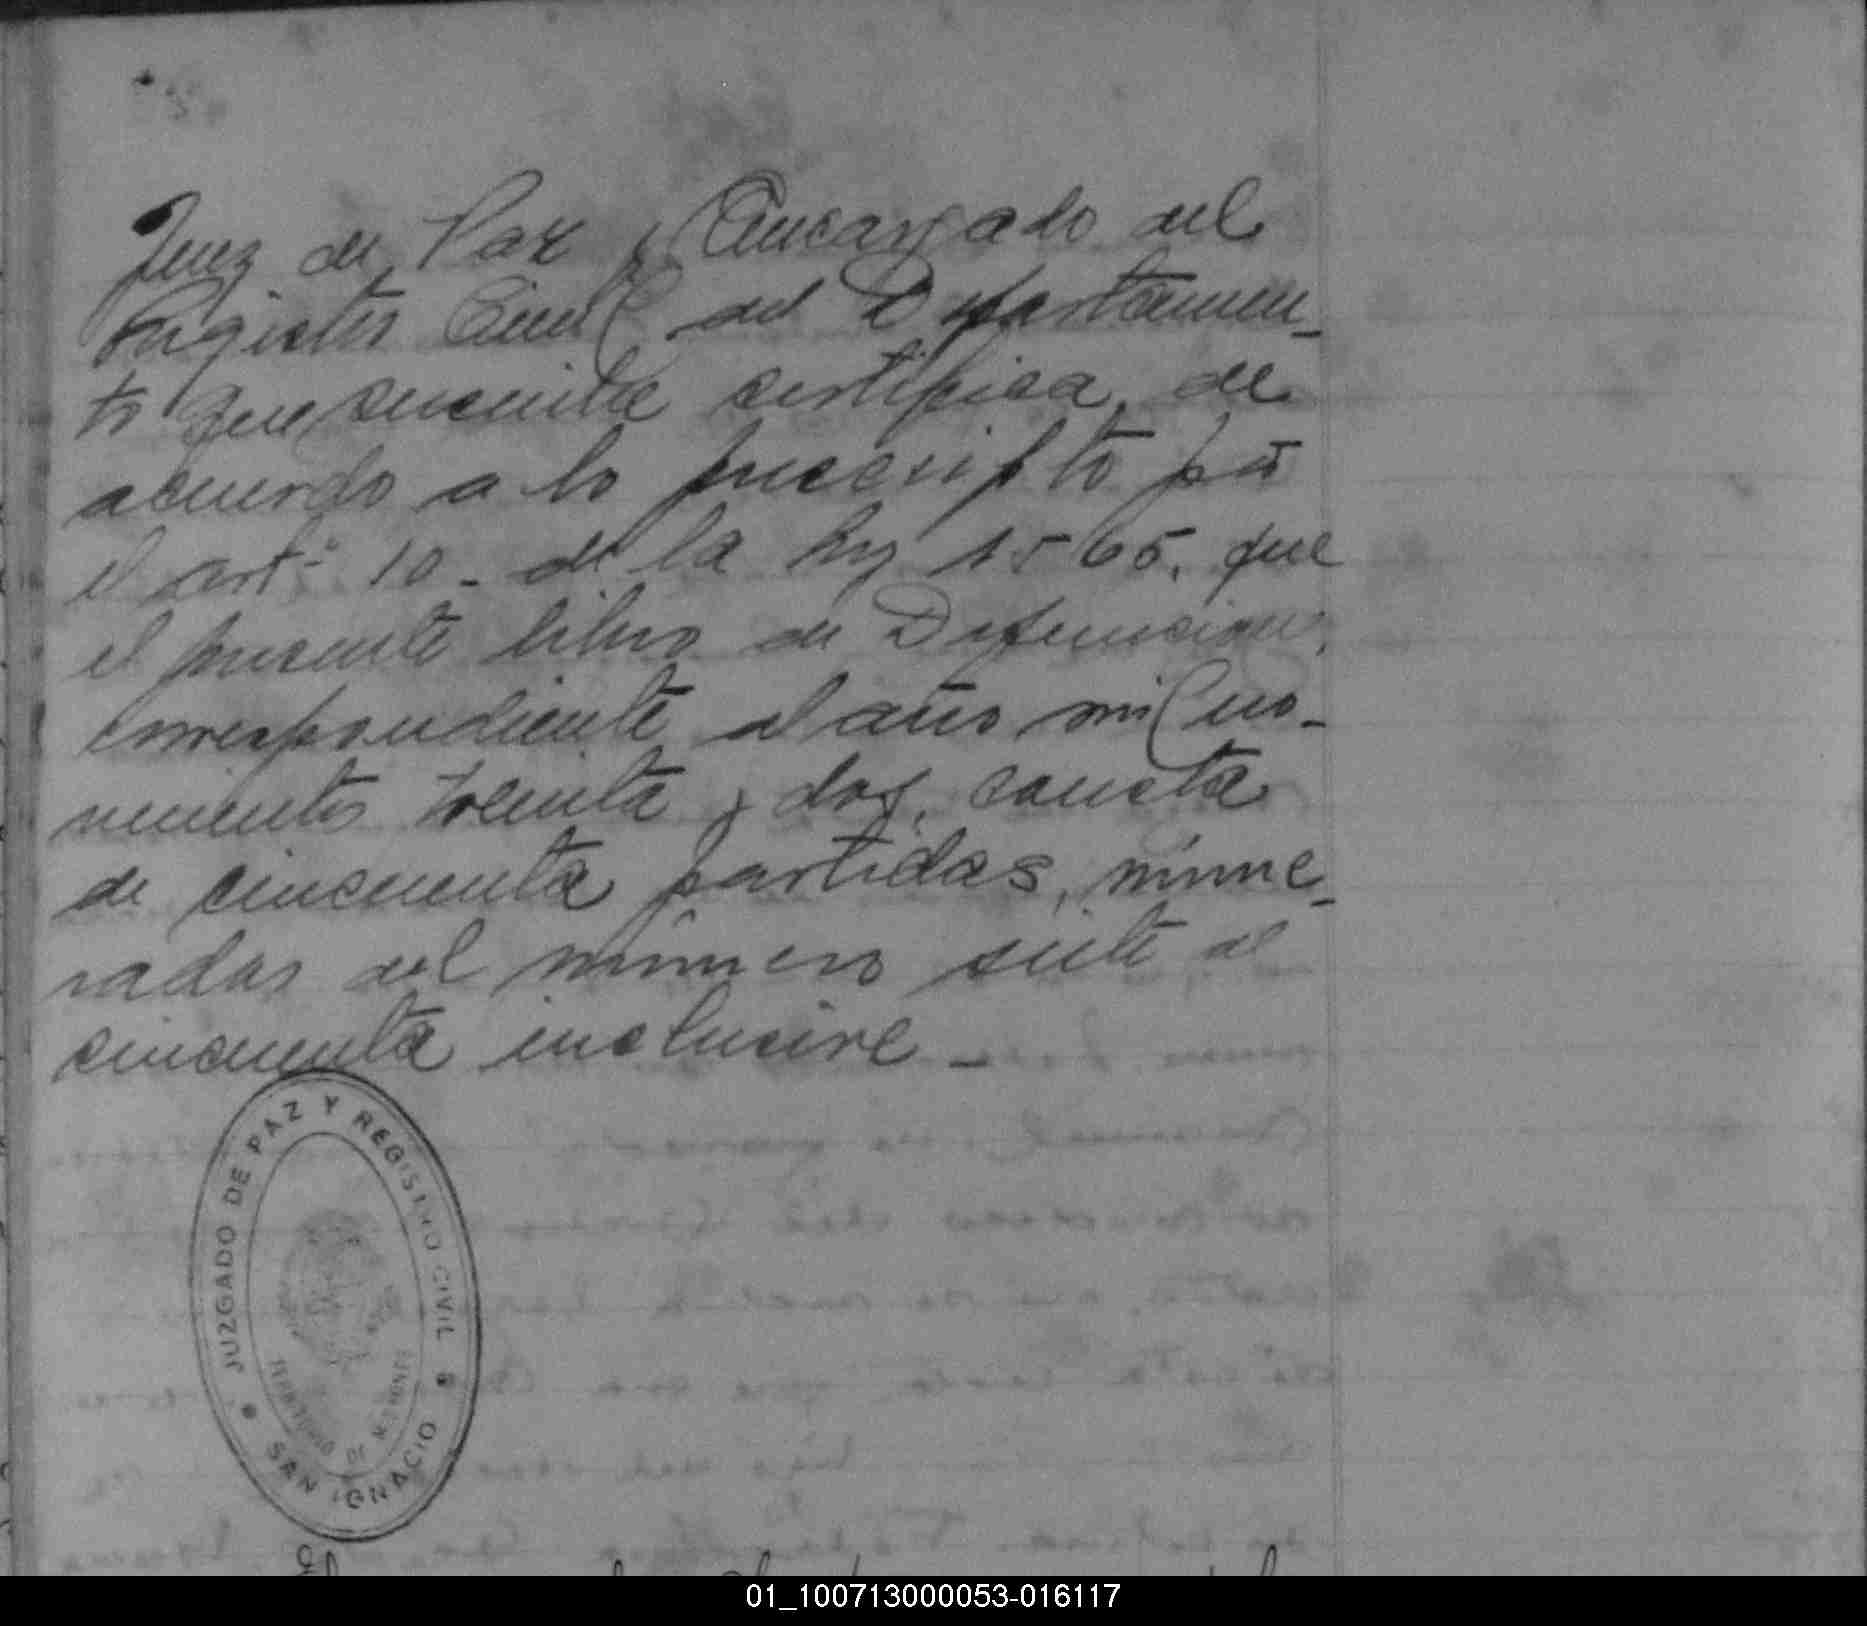 Juez de Paz y Encargado del
Registro Civil del Departamen-
to que suscribe certifica, de
acuerdo a lo prescripto por
el artº 10 - de la ley 1565, que
el presente libro de Defunciones,
correspondiente al año mil no-
vecientos treinta y dos, consta
de cincuenta partidas, nume-
radas del número siete al
cincuenta inclusive -
JUZGADO DE PAZ Y REGISTRO CIVIL
TERRITORIO DE MISIONES
SAN IGNACIO
01_100713000053-016117